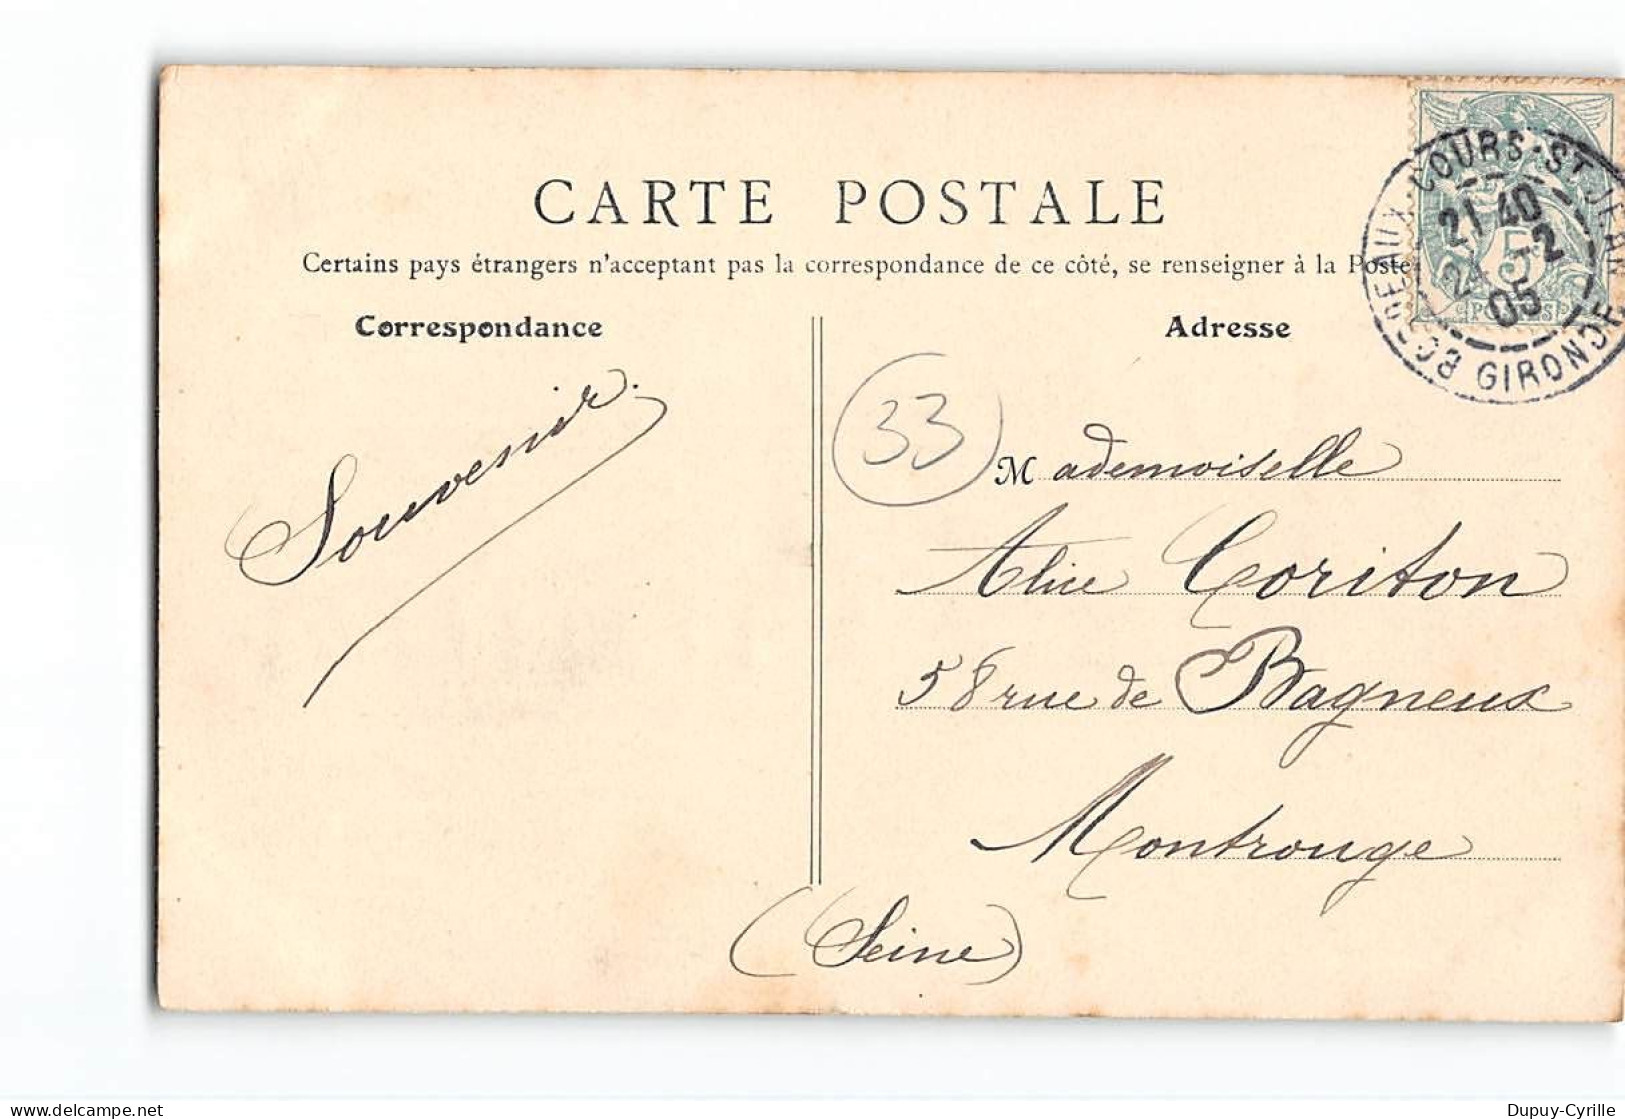 CARTE POSTALE
Certains pays étrangers n'acceptant pas la correspondance de ce côté, se renseigner à la Poste
Correspondance
Adresse
BORDEAUX-COURS-ST-JEAN
21 40
24 -2
05
GIRONDE
5
POSTES
Souvenir.
33
Mademoiselle
Alice Coriton
58 rue de Bagneux
Montrouge
(Seine)
Dupuy-Cyrille